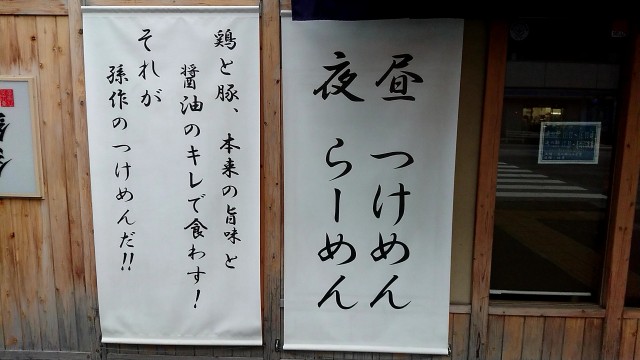 昼 つけめん
夜 らーめん
鶏と豚、本来の旨味と
醤油のキレで食わす!
それが
孫作のつけめんだ!!